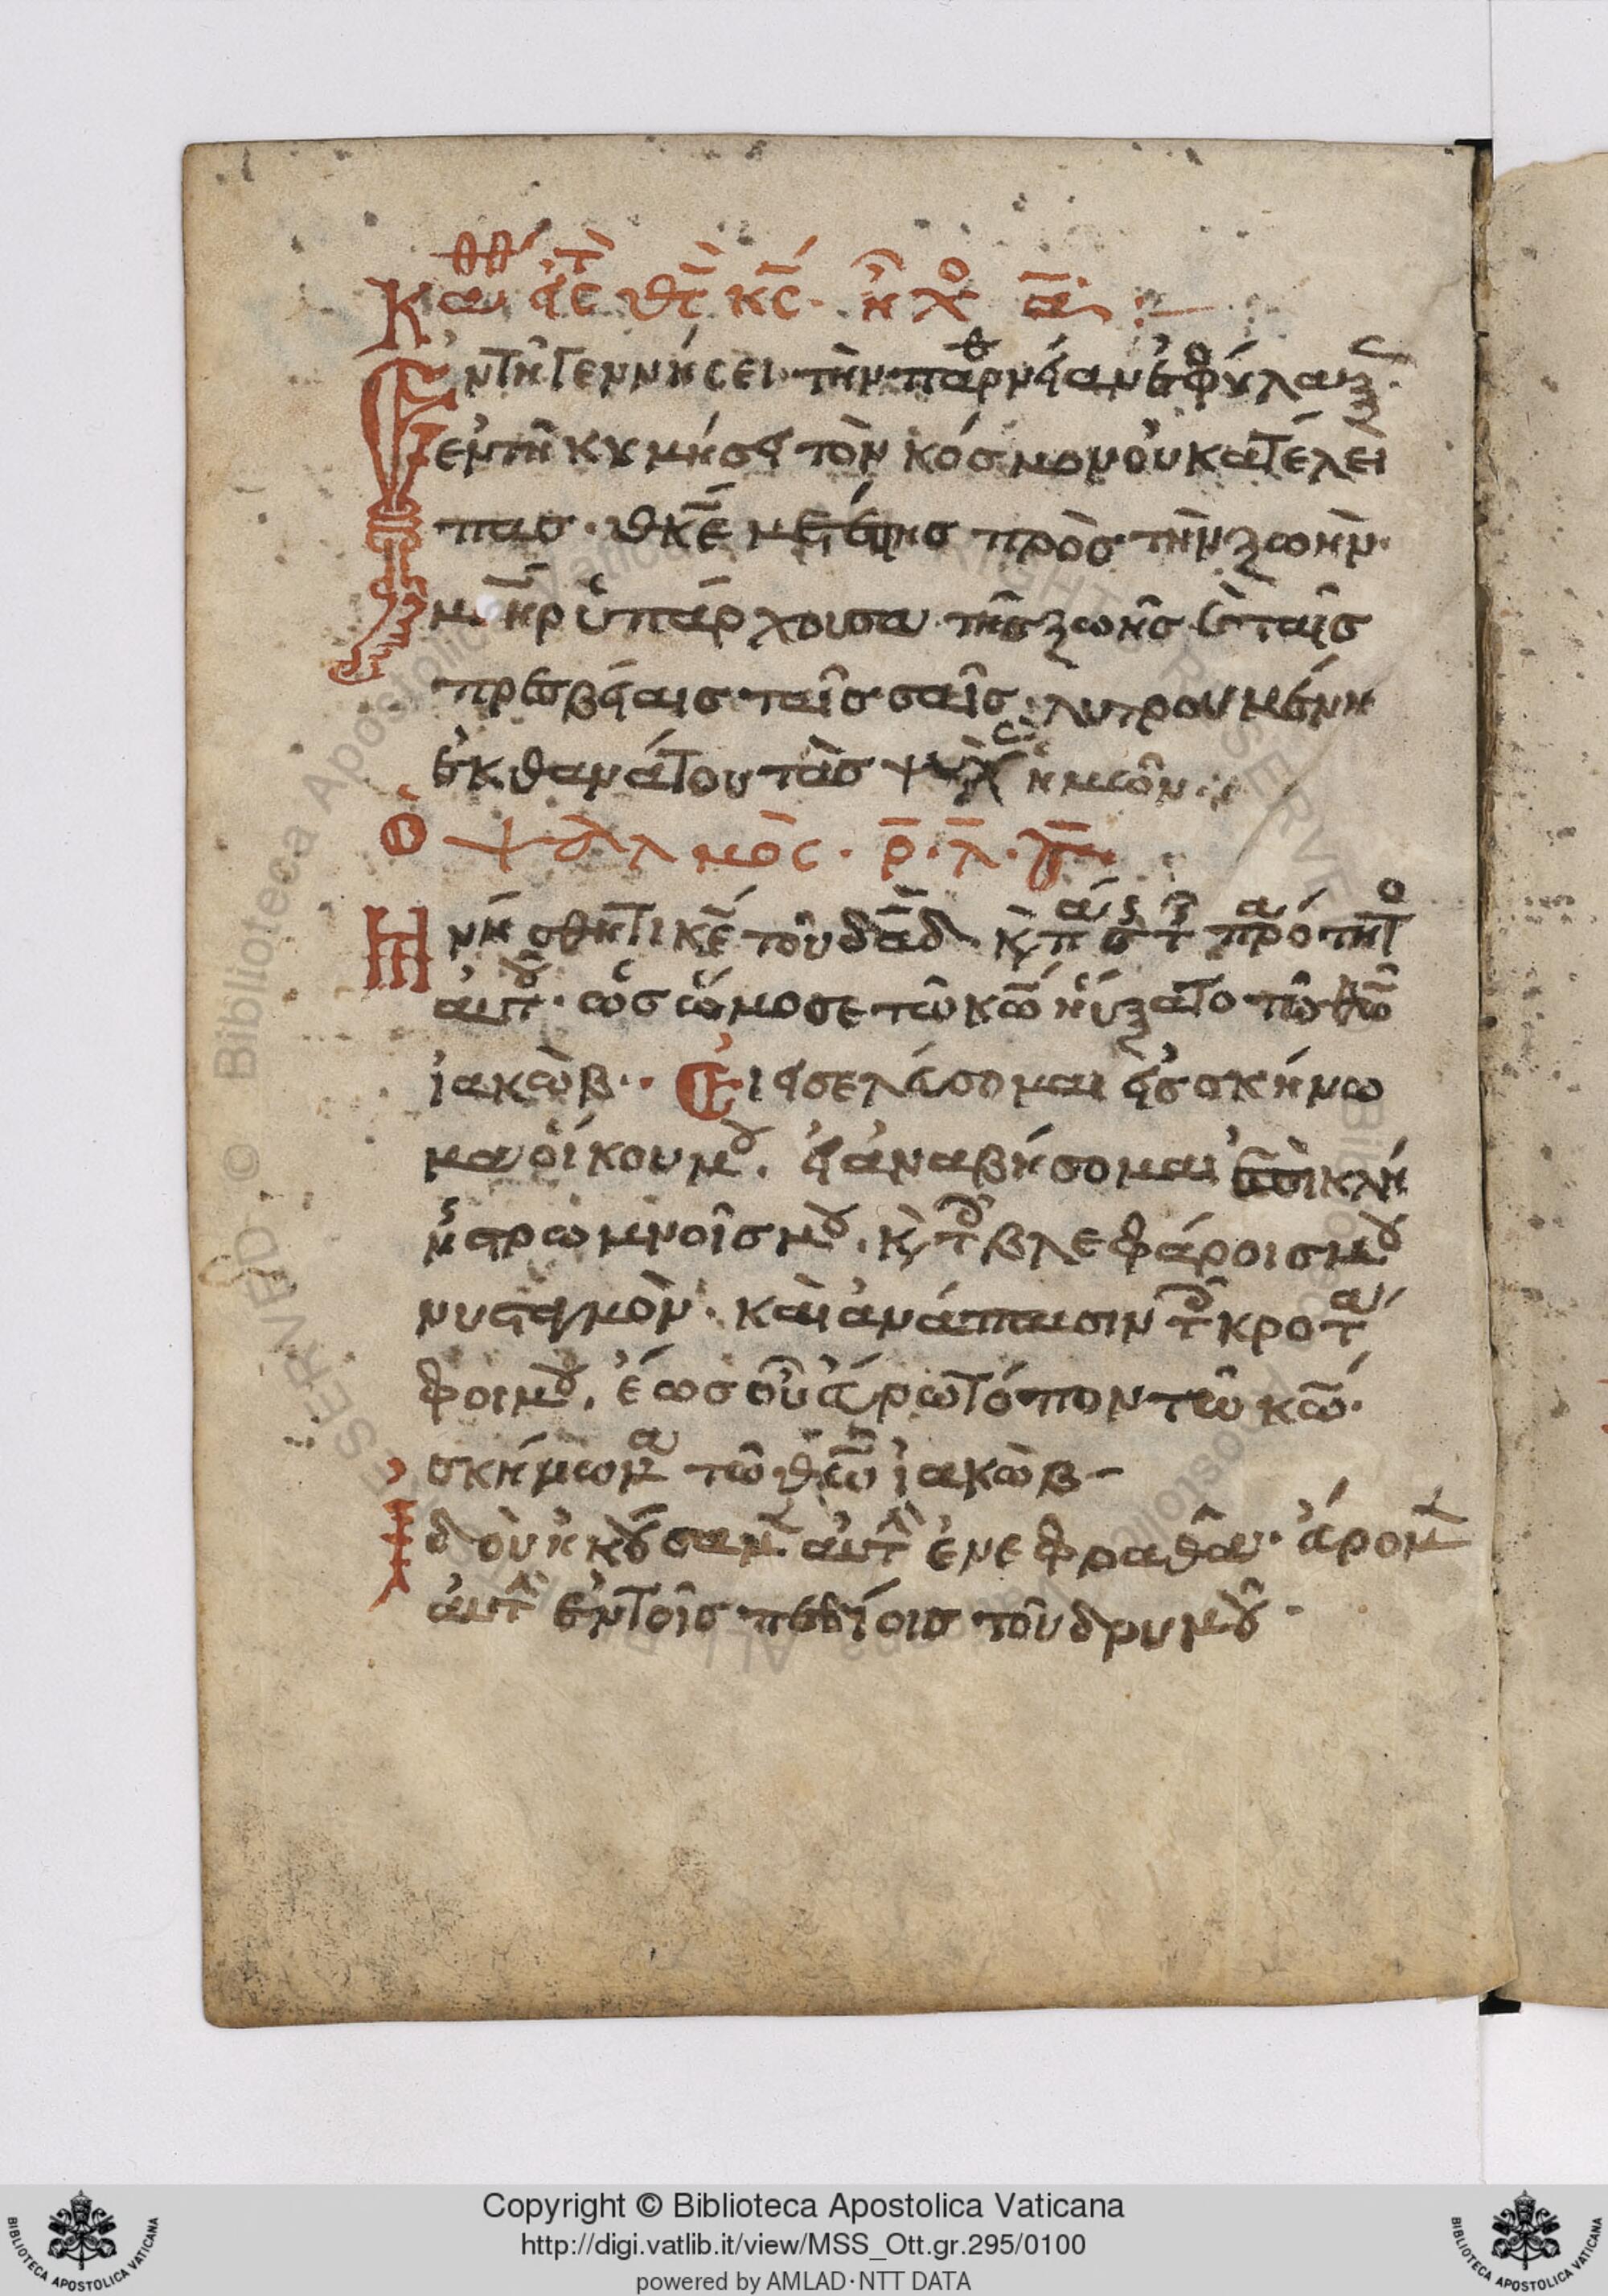 ἐν τῇ γεννήσει τὴν παρθενίαν ἐφύλαξ
ε ἐν τῇ κυμήσει τὸν κόσμον οὐ κατέλει
πας θκε μετέστης πρὸς τὴν ζωὴν
μηρ ὑπάρχουσα τῆς ζωῆς καὶ ταῖς
πρεσβείαις ταῖς σαῖς λυτρουμένη
ἐκ θανάτου τὰς ψυχὰς ἡμῶν
ὁ ψαλμὸς ρλγ
μνήσθητι κε τοῦ δαδ κ πάσης τ πραότητο
αὐτοῦ ὡς ὤμοσε τῶ κω ηὔξατο τῶ θω
ἰακὼβ Εἰ εἰσελεύσομαι εἰς σκήνω
μα οἴκου μου εἰ ἀναβήσομαι ἐπὶ κλί
νης στρωμνοῖς μου κ τοῖς βλεφάροις μου
νυσταγμὸν καὶ ἀνάπαυσιν τοῖς κροτα
φοι μου ἕως οὗ εὕρω τόπον τῶ κω
σκήνωμα τῶ θεῶ ἰακὼβ
Ἰδοὺ ἠκούσαμεν αὐτὴν ἐν εφραθᾶ εὕρομεν
αὐτὴν ἐν τοῖς πεδίοις τοῦ δρυμοῦ
Copyright © Biblioteca Apostolica Vaticana
http://digi.vatlib.it/view/MSS_Ott.gr.295/0100
powered by AMLAD·NTT DATA
BIBLIOTECA APOSTOLICA VATICANA
BIBLIOTECA APOSTOLICA VATICANA